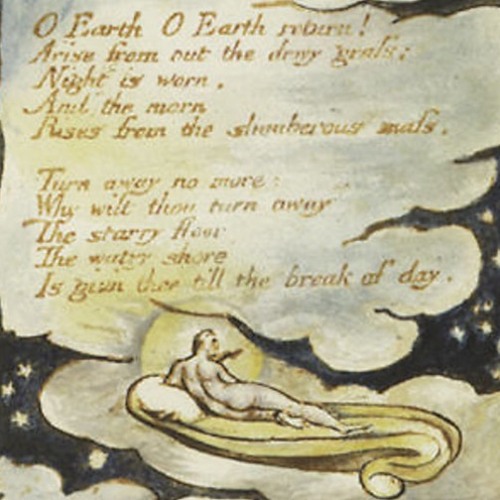 O Earth O Earth return!
Arise from out the dewy grass;
Night is worn,
And the morn
Rises from the slumberous mass.
Turn away no more:
Why wilt thou turn away
The starry floor
The watry shore
Is giv'n thee till the break of day.